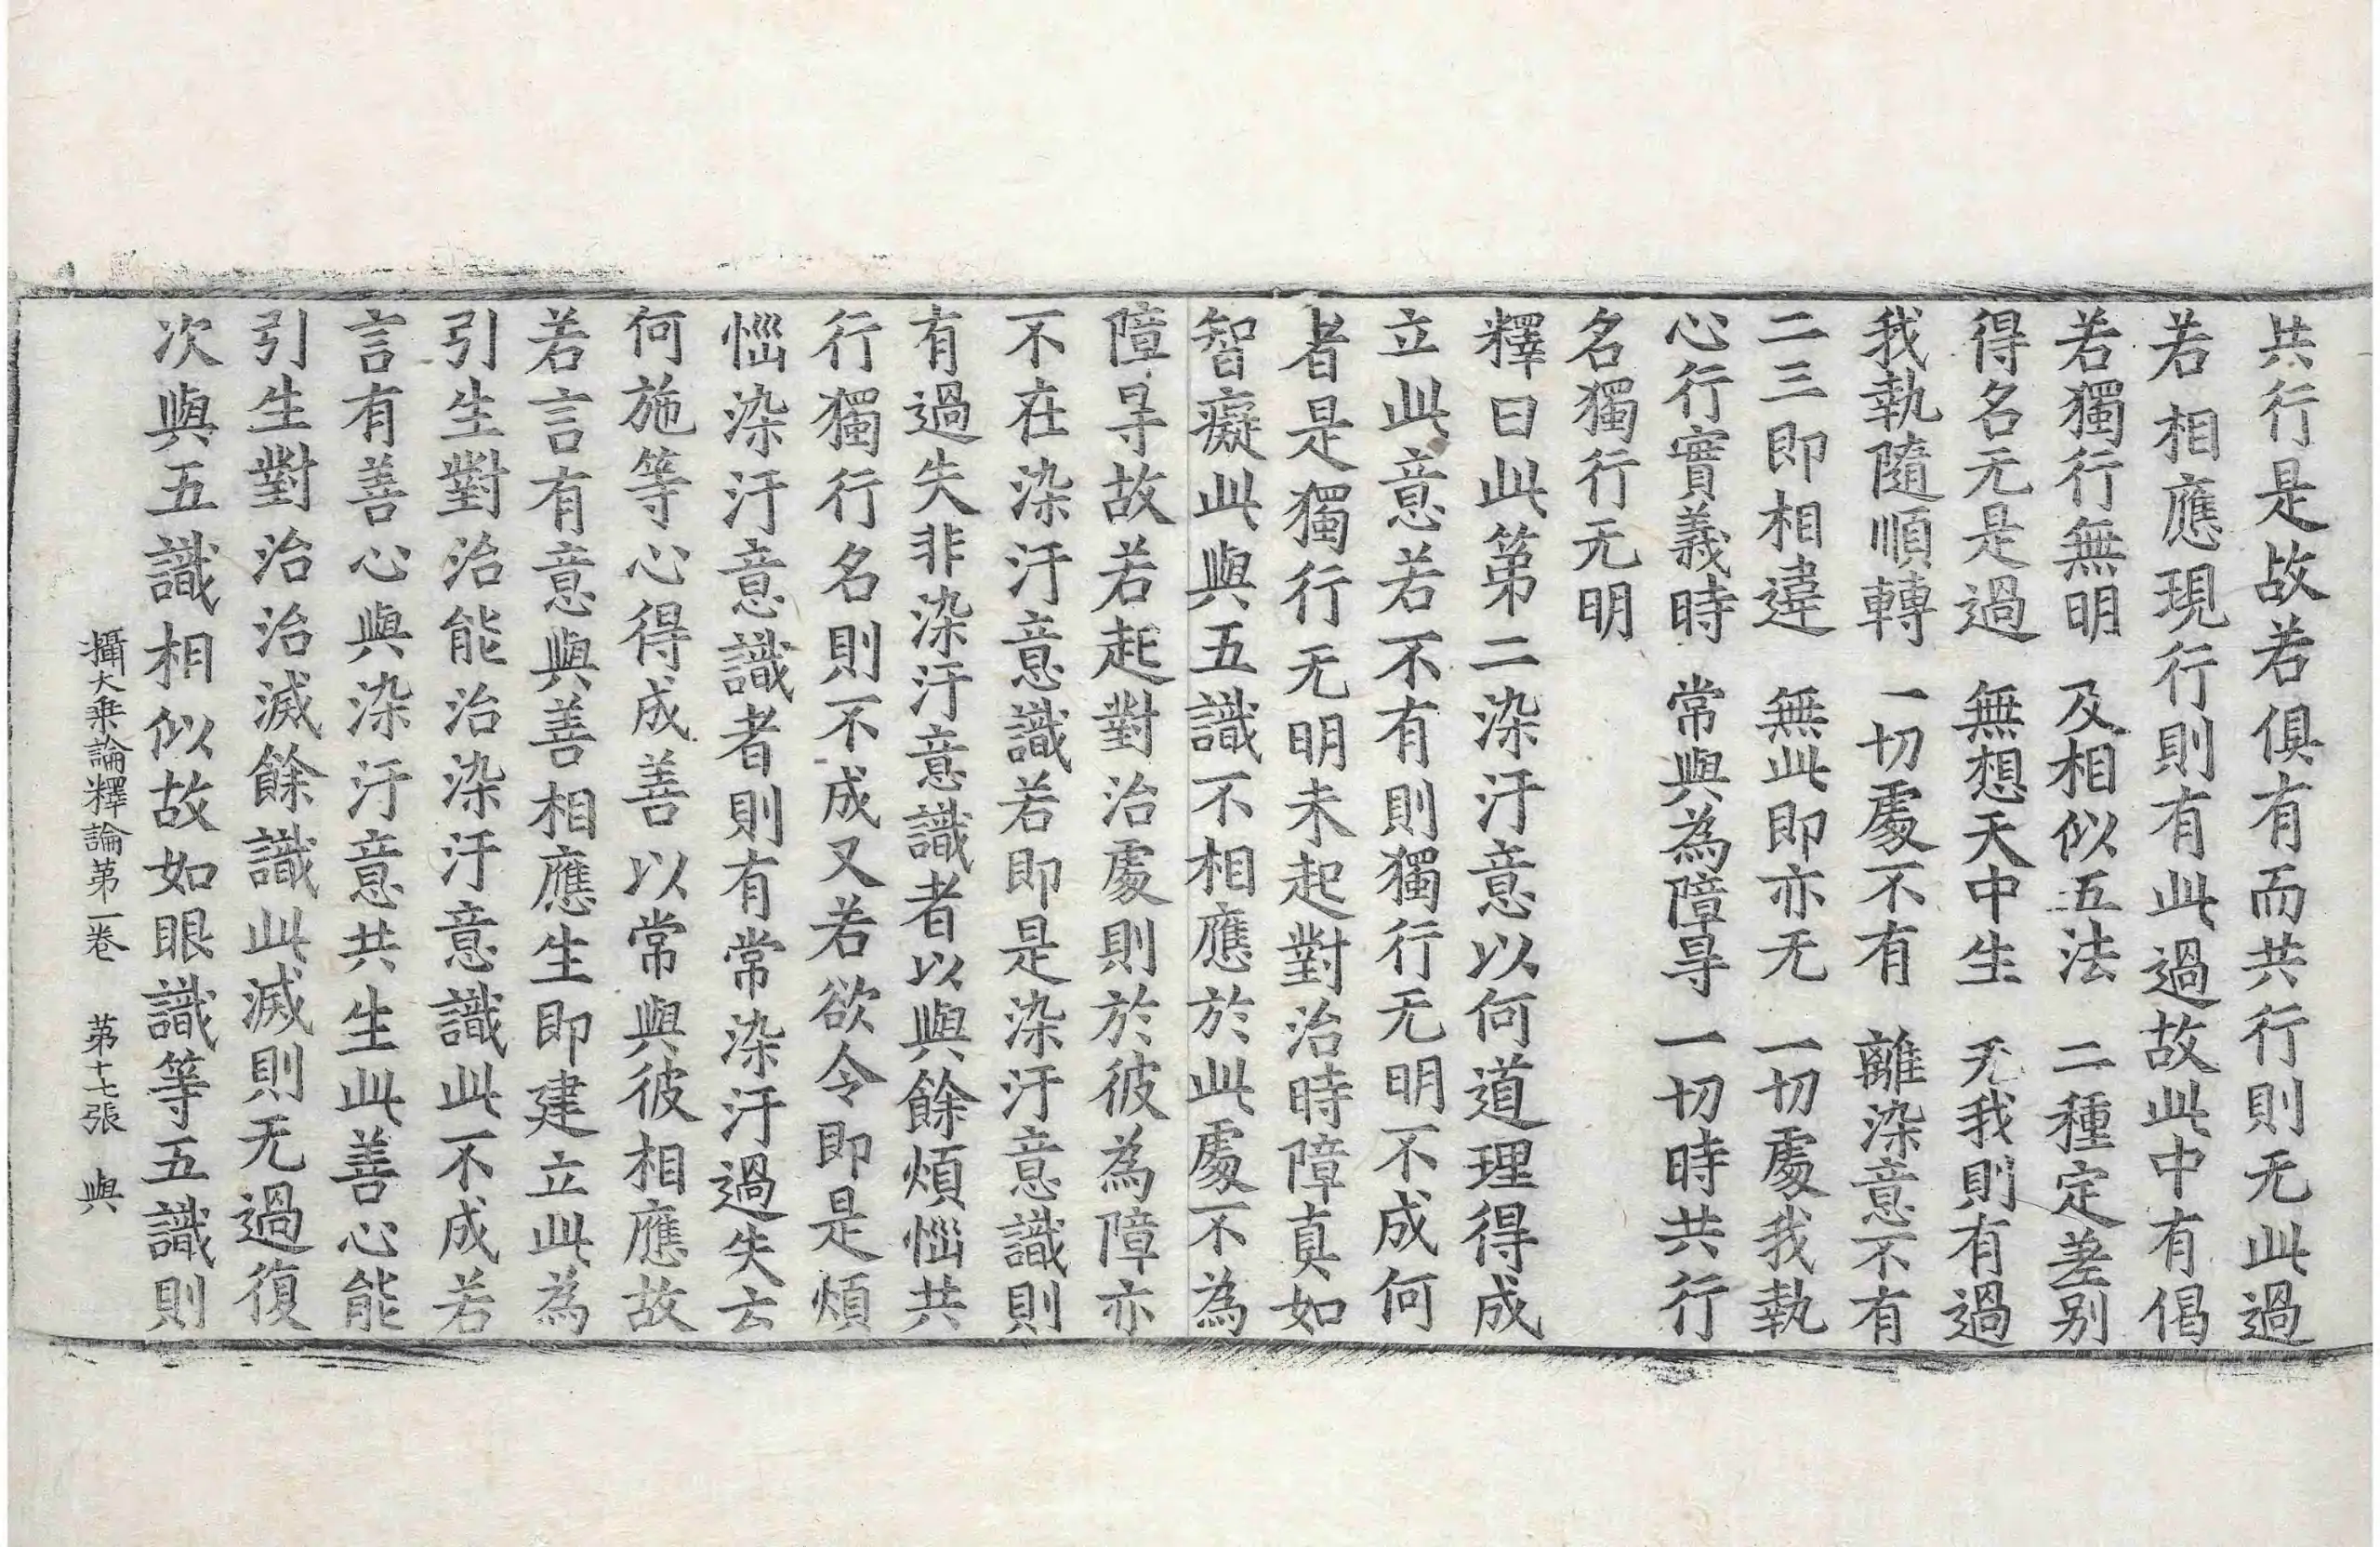 共行是故若俱有而共行則无此過
若相應現行則有此過故此中有偈
若獨行無明　及相似五法　二種定差别
得名无是過　無想天中生　无我則有過
我執隨順轉　一切處不有　離染意不有
二三即相違　無此即亦无　一切處我執
心行實義時　常與為障㝵　一切時共行
名獨行无明
釋曰此第二染汙意以何道理得成
立此意若不有則獨行无明不成何
者是獨行无明未起對治時障真如
智癡此與五識不相應於此處不為
障㝵故若起對治處則於彼為障亦
不在染汙意識若即是染汙意識則
有過失非染汙意識者以與餘煩惱共
行獨行名則不成又若欲令即是煩
惱染汙意識者則有常染汙過失去
何施等心得成善以常與彼相應故
若言有意與善相應生即建立此為
引生對治能治染汙意識此不成若
言有善心與染汙意共生此善心能
引生對治治滅餘識此滅則无過復
次與五識相似故如眼識等五識則
攝大乗論釋論第一卷　第十七張　與